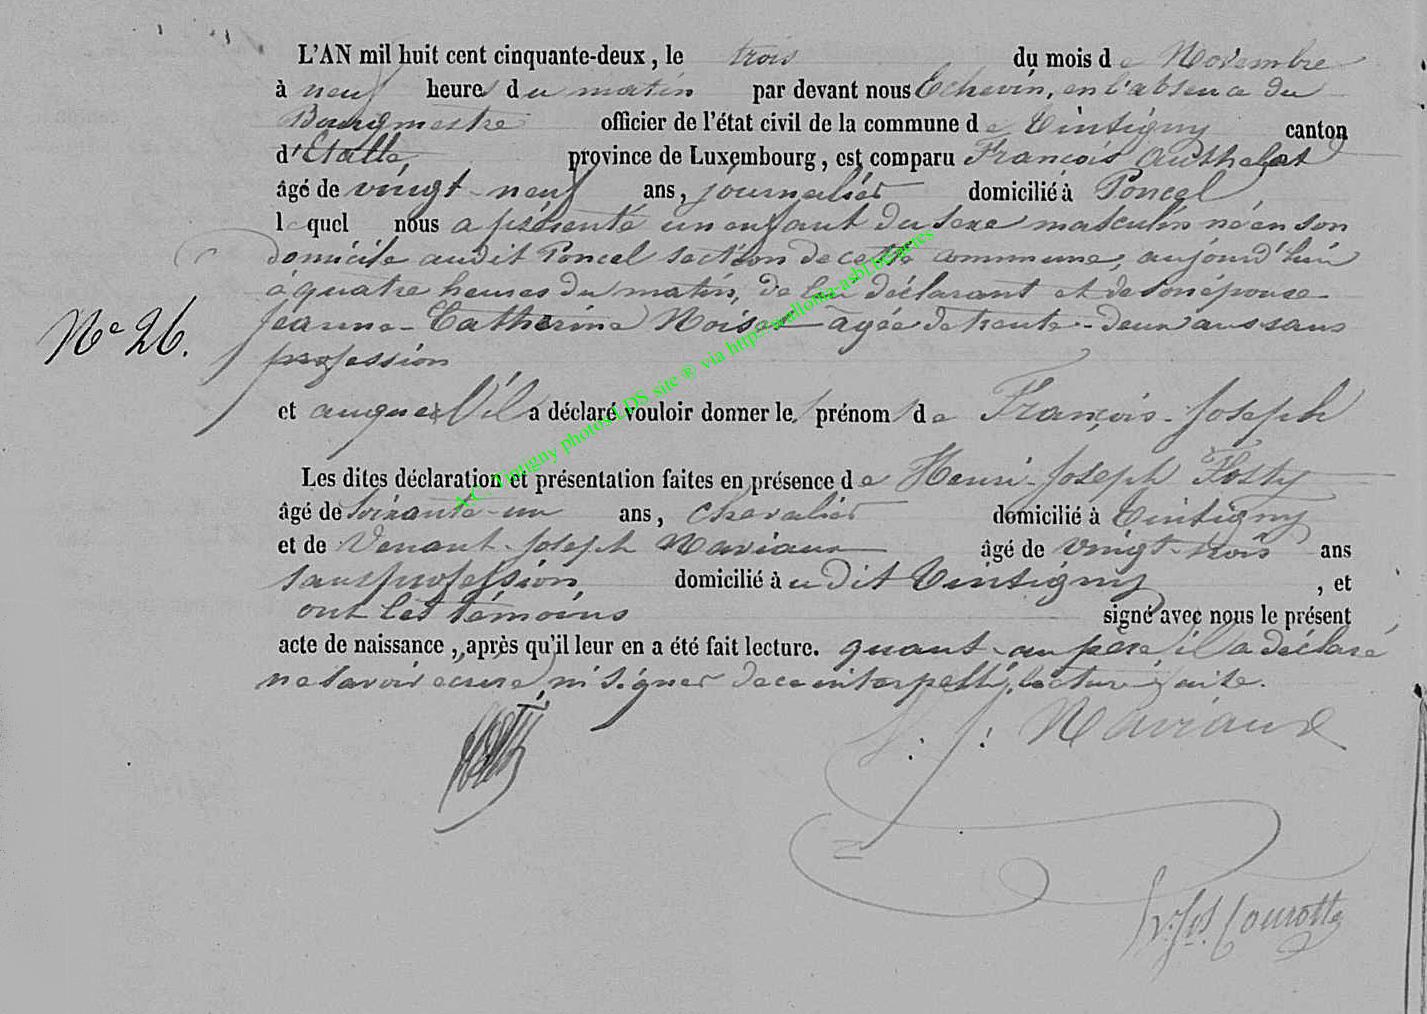 L'AN mil huit cent cinquante-deux, le trois du mois de Novembre
à neuf heures du matin par devant nous Echevin, en l'absence du
Bourgmestre officier de l'état civil de la commune de Tintigny canton
d'Etalle, province de Luxembourg, est comparu François Authelet
âgé de vingt-neuf ans, journalier domicilié à Poncel
lequel nous a présenté un enfant du sexe masculin né en son
domicile audit Poncel section de cette commune, aujourd'hui
à quatre heures du matin, de lui déclarant et de son épouse
N° 26.
Jeanne-Catherine Noiset agée de trente-deux ans sans
profession
et auquel il a déclaré vouloir donner le prénom de François-Joseph
Les dites déclaration et présentation faites en présence de Henri-Joseph Fosty
âgé de soixante-un ans, chevalier domicilié à Tintigny
et de Venant-Joseph Maviaux âgé de vingt-trois ans
sans profession domicilié audit Tintigny, et
ont les témoins signé avec nous le présent
acte de naissance, après qu'il leur en a été fait lecture. quant au père il a déclaré
ne savoir écrire, ni signer de ce interpellé, lecture faite.
V. J. Maviaux
A.C. Tintigny photos LDS site ® via http://wallonia-asbl.be/actes